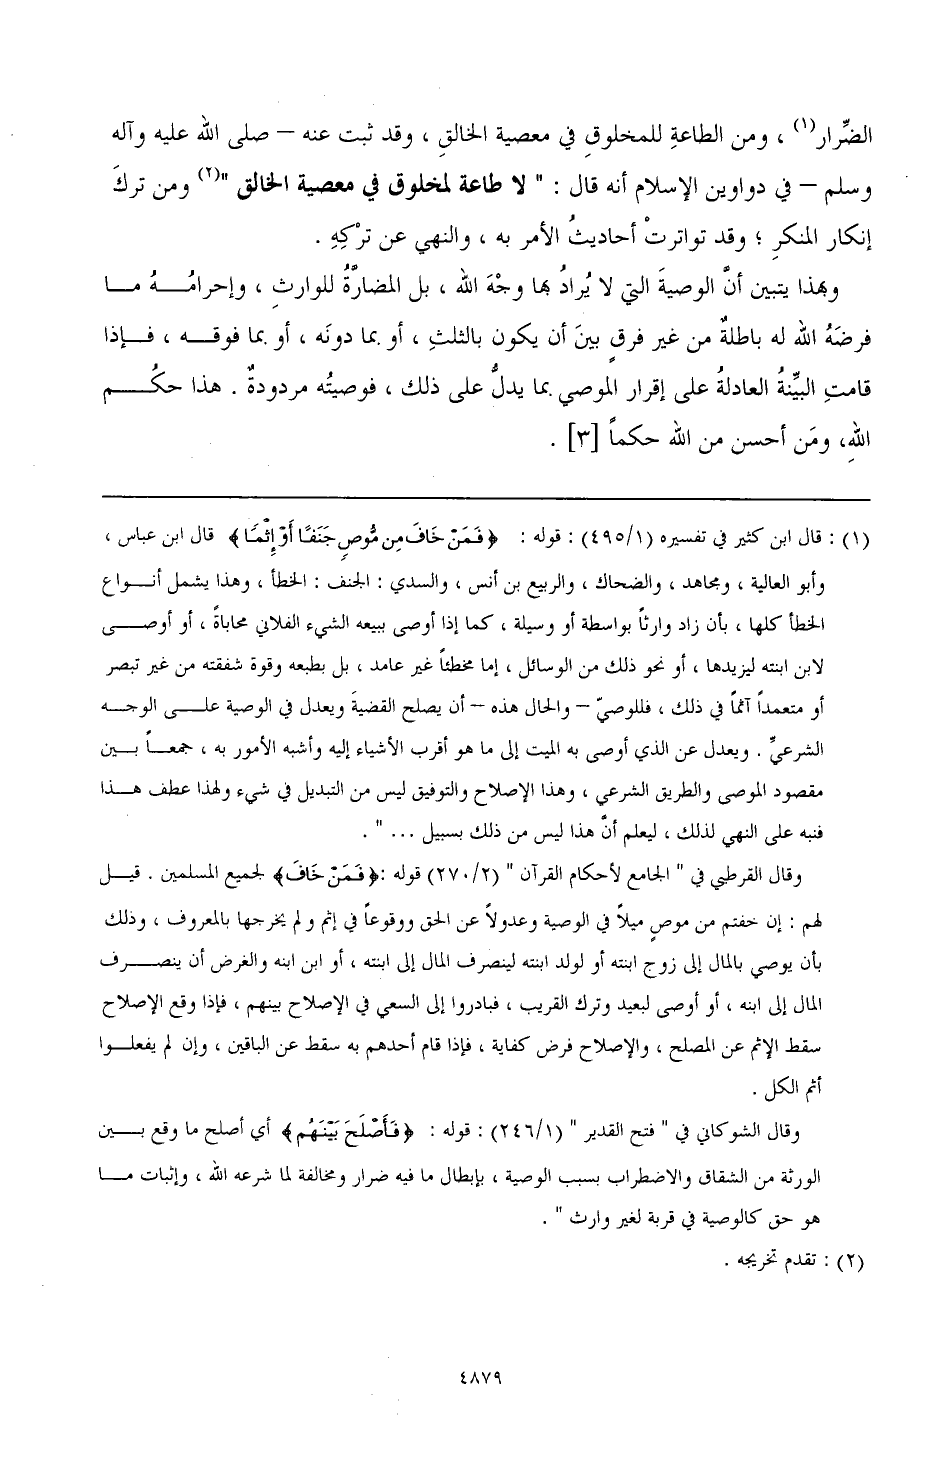 الضِّرار(١) ، ومن الطاعةِ للمخلوقِ في معصية الخالقِ ، وقد ثبت عنه – صلى الله عليه وآله
وسلم – في دواوين الإسلام أنه قال : " لا طاعة لمخلوق في معصية الخالق "(٢) ومن تركَ
إنكار المنكرِ ؛ وقد تواترتْ أحاديثُ الأمر به ، والنهي عن ترْكِهِ .
وبهذا يتبين أنَّ الوصيةَ التي لا يُرادُ بها وجْهَ الله ، بل المضارَّةُ للوارثِ ، وإحرامُــهُ مــا
فرضَهُ الله له باطلةٌ من غير فرقٍ بينَ أن يكون بالثلثِ ، أو بما دونَه ، أو بما فوقــه ، فــإذا
قامتِ البيِّنةُ العادلةُ على إقرار الموصي بما يدلُّ على ذلك ، فوصيتُه مردودةٌ . هذا حكْــــم
اللهِ، ومَن أحسن من الله حكماً [٣] .
(١) : قال ابن كثير في تفسيره (٤٩٥/١) : قوله : ﴿فَمَنْ خَافَ مِن مُّوصٍ جَنَفًا أَوْ إِثْمًا﴾ قال ابن عباس ،
وأبو العالية ، ومجاهد ، والضحاك ، والربيع بن أنس ، والسدي : الجنف : الخطأ ، وهذا يشمل أنــواع
الخطأ كلها ، بأن زاد وارثاً بواسطة أو وسيلة ، كما إذا أوصى ببيعه الشيء الفلاني محاباةً ، أو أوصــى
لابن ابنته ليزيدها ، أو نحو ذلك من الوسائل ، إما مخطئاً غير عامد ، بل بطبعه وقوة شفقته من غير تبصر
أو متعمداً آثماً في ذلك ، فللوصيّ – والحال هذه – أن يصلح القضيةَ ويعدل في الوصية علــى الوجــه
الشرعيِّ . ويعدل عن الذي أوصى به الميت إلى ما هو أقرب الأشياء إليه وأشبه الأمور به ، جمعــاً بــين
مقصود الموصى والطريق الشرعي ، وهذا الإصلاح والتوفيق ليس من التبديل في شيء ولهذا عطف هــذا
فنبه على النهي لذلك ، ليعلم أنَّ هذا ليس من ذلك بسبيل ... " .
وقال القرطبي في " الجامع لأحكام القرآن " (٢٧٠/٢) قوله :﴿فَمَنْ خَافَ﴾ لجميع المسلمين . قيــل
لهم : إن خفتم من موصٍ ميلاً في الوصية وعدولاً عن الحق ووقوعاً في إثم ولم يخرجها بالمعروف ، وذلك
بأن يوصي بالمال إلى زوج ابنته أو لولد ابنته لينصرف المال إلى ابنته ، أو ابن ابنه والغرض أن ينصــرف
المال إلى ابنه ، أو أوصى لبعيد وترك القريب ، فبادروا إلى السعي في الإصلاح بينهم ، فإذا وقع الإصلاح
سقط الإثم عن المصلح ، والإصلاح فرض كفاية ، فإذا قام أحدهم به سقط عن الباقين ، وإن لم يفعلــوا
أثم الكل .
وقال الشوكاني في " فتح القدير " (٢٤٦/١) : قوله : ﴿فَأَصْلَحَ بَيْنَهُم﴾ أي أصلح ما وقع بــين
الورثة من الشقاق والاضطراب بسبب الوصية ، بإبطال ما فيه ضرار ومخالفة لما شرعه الله ، وإثبات مــا
هو حق كالوصية في قربة لغير وارث " .
(٢) : تقدم تخريجه .
٤٨٧٩